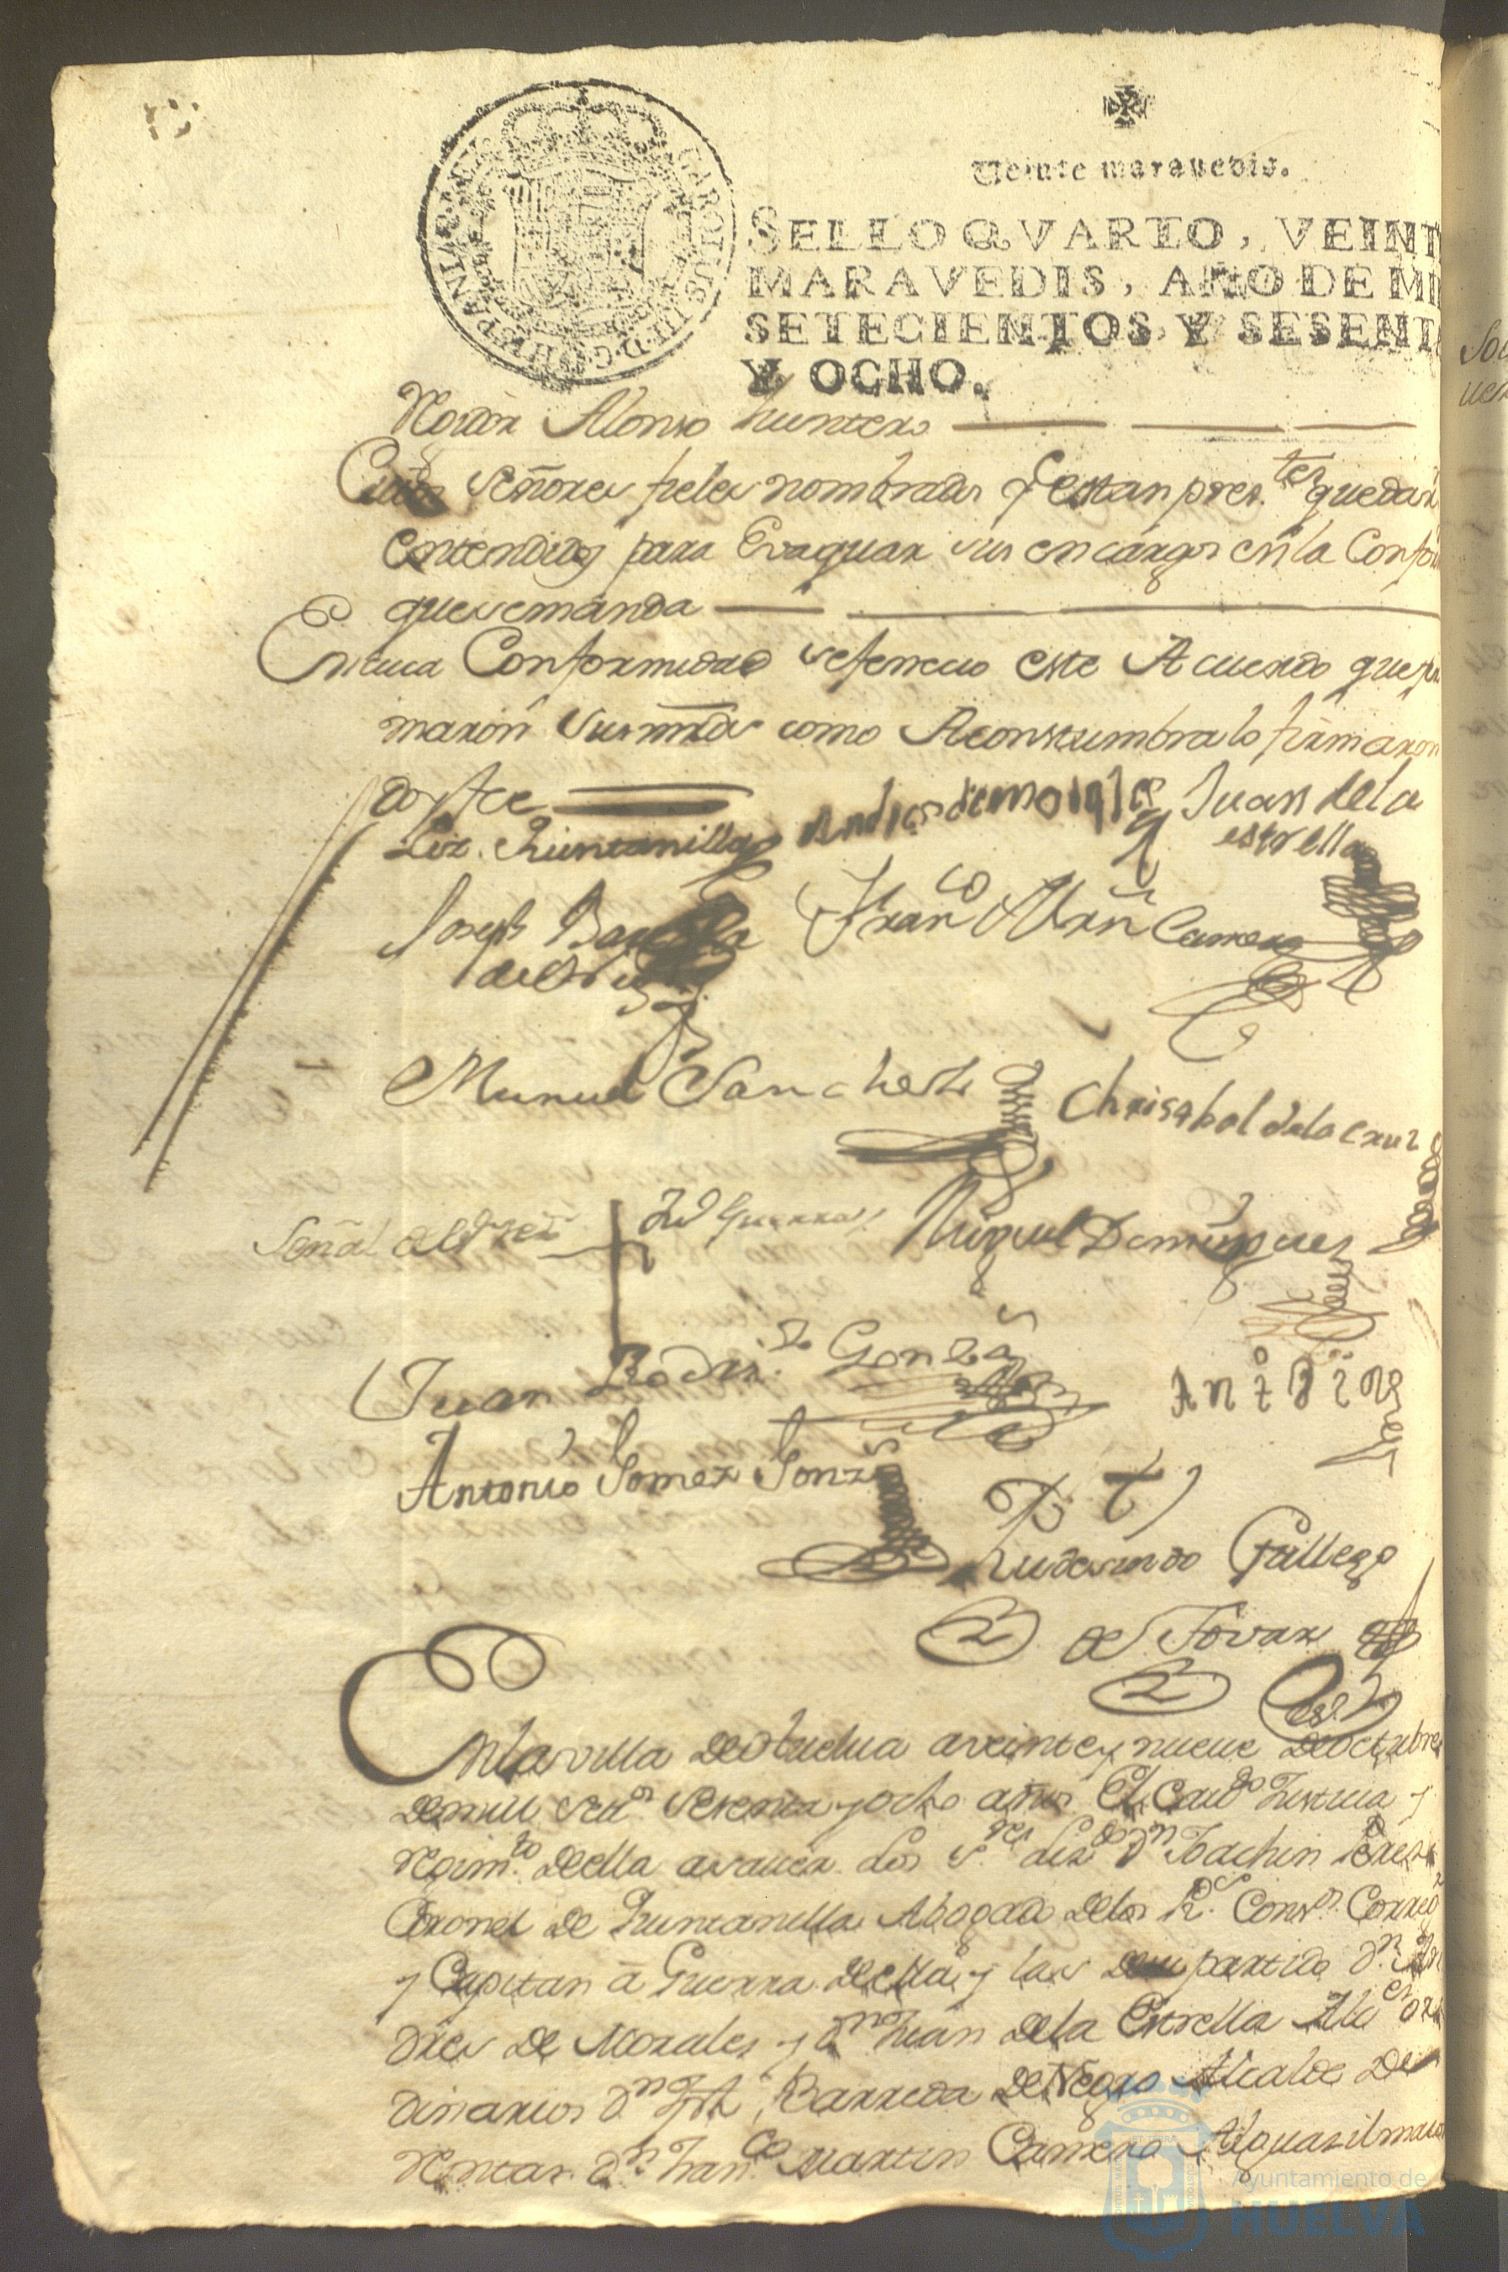 Veinte maravedis.
SELLO QVARTO, VEINT
MARAVEDIS, AÑO DE MI
SETECIENTOS Y SESENT
Y OCHO.
CAROLUS III D G HISPANIAR
Alonso quintero
señores fieles nombrados q estan pres.tes quedar
entendidos para Evaquar sus encargos en la Confor
que se manda
En cuia Conformidad se fenecio este Acuerdo que fir
maron sus mrds como Acostumbra lo firmaron
doy fee
Liz. Quintanilla Andres de morales Juan de la
estrella
Joseph Barreda Fran.co Mrñ Camero
Manuel Sanchez Christobal de la Cruz
Señal del Rexor Jph Guerra Miguel Dominguez
Juan Rodrz. Gonzs
Antonio Gomez Gonzs
Rudesindo Gallego
de Tovar
En la villa de Huelua a veinte y nueue de Octubre
de mill setes. sesenta y ocho años El Cauдo Justicia y
regim.to della a sauer los s.res lizdo Dn Joachin Perez
Coronel de Quintanilla Abogado de los R.s Cons.os Correg
y Capitan â Guerra de ella y las de su partido Dn. An
dres de Morales y Dn Juan de la Estrella Alces or
dinarios Dn Jph Barreda de Negro Alcalde De
rentas Dn. Fran.co Martin Camero Alguazil maior
Ayuntamiento de
HUELVA